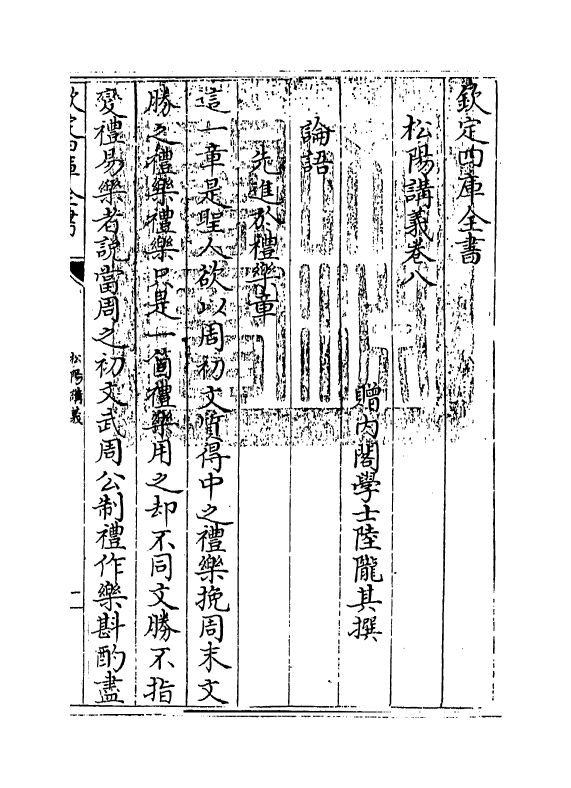 欽定四庫全書
松陽講義卷八
贈內閣學士陸隴其撰
論語
先進於禮樂章
這一章是聖人欲以周初文質得中之禮樂挽周末文
勝之禮樂禮樂只是一箇禮樂用之却不同文勝不指
變禮易樂者說當周之初文武周公制禮作樂斟酌盡
欽定四庫全書
松陽講義